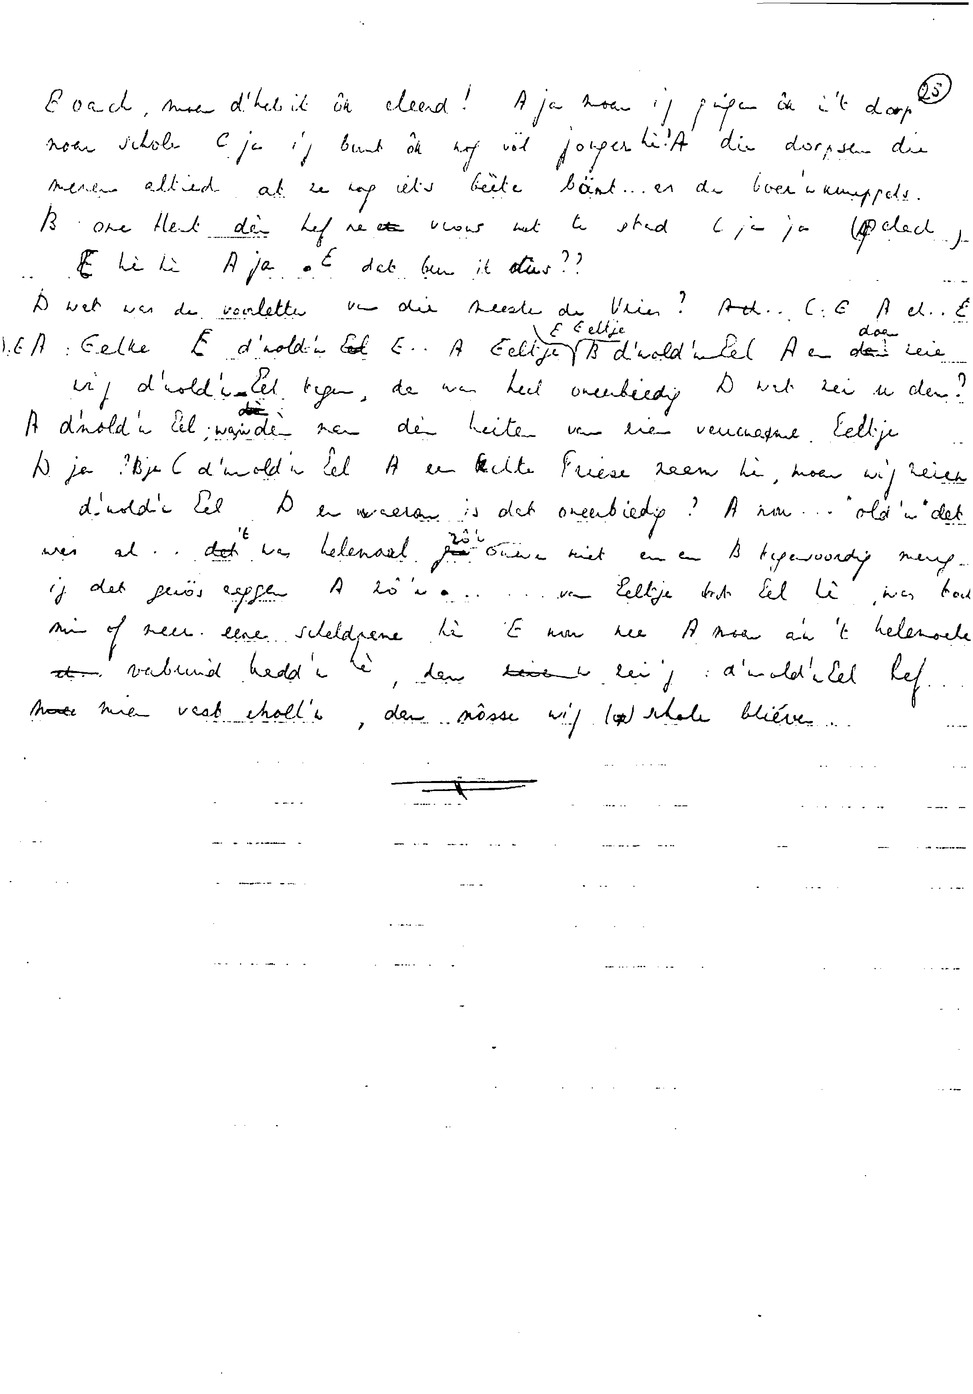 25
E oach, moar d'heb ik ôk eleerd! A ja moar ij gingen ôk in 't dorp
noar schole C ja ij bunt ôk nog völ jonger hè! A die dorpsen die
menen altied at ze nog iets bèète bänt... en de boer'nknuppels.
B onze Hent dèn hef ne vrouw uut te stad C ja ja (gelach)
E hè hè A ja . E dat ben ik dus??
D wat was de voorletter van die meester de Vries? A d.. C: E A d.. E
D.E A: Eelke E d'nold'n Eel E.. A Eeltje E Eeltje B d'nold'n Eel A en doar zeie
wij d'nold'n Eel tegen, da was heel oneerbiedig D wat zei u dan?
A d'nold'n Eel, want dèn man dèn heiten van zien veurnaeme Eeltje
D ja? B ja C d'nold'n Eel A een echte Friese naam hè, moar wij zeien
d'nold'n Eel D en waarom is dat oneerbiedig? A nou... "old'n" det
was al.. 't was helemaol zô'n niet en en B tegenwoordig meug
ij det gewoon zeggen A zô'n ... van Eeltje tot Eel hè, was toch
min of meer eene scheldname hè E nou nee A moar a'n 't helemoale
verbruid hadd'n hè, dan zei'j: d'nold'n Eel hef...
mien vast eholl'n, dan mösse wij (op) schole blieve...